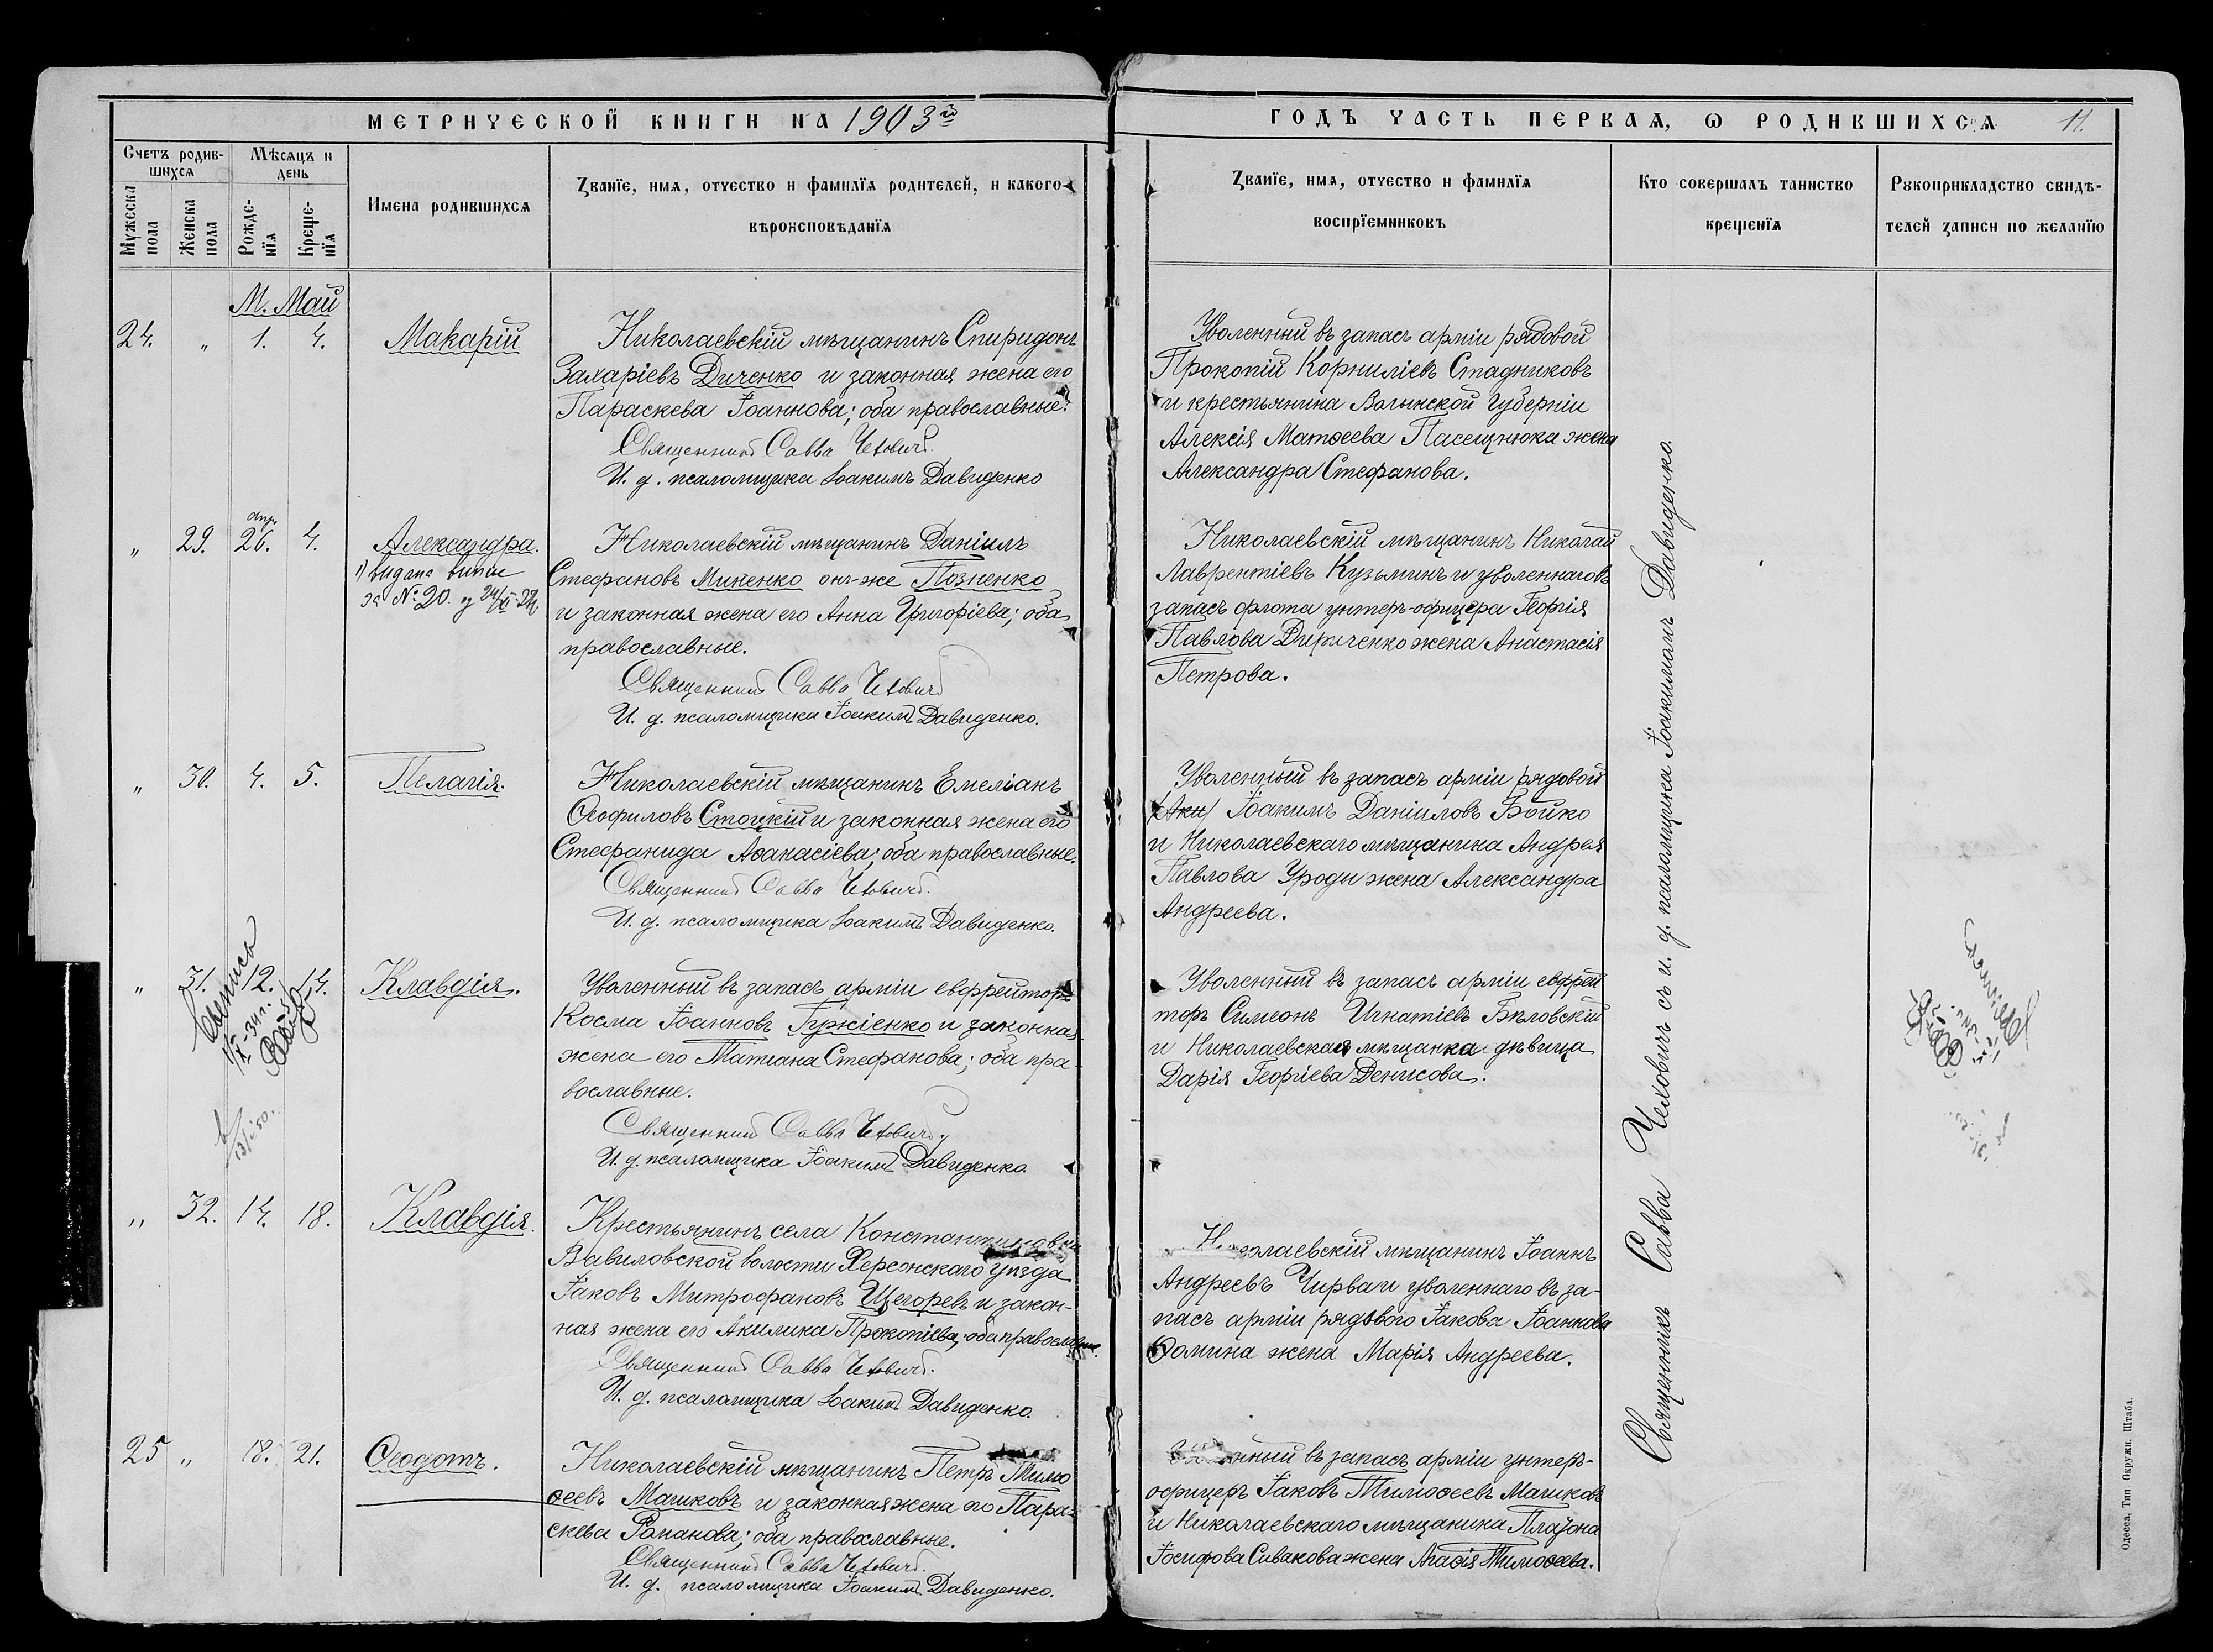 МЕТРИЧЕСКОЙ КНИГИ НА 1903й
Счетъ родив-
шихся
Мѣсяцъ и
день
Мужеска
пола
Женска
пола
Рожде-
нїя
Креще-
нїя
Имена родившихся
Званїе, имя, отчество и фамилїя родителей, и какого
вѣроисповѣданїя
М. Май
24. „ 1. 4. Макарій
Николаевскій мѣщанинъ Спиридонъ
Захаріевъ Диченко и законная жена его
Параскева Іоаннова; оба православные.
Священникъ Савва Чехович
И. д. псаломщика Іоакимъ Давиденко
„ 29. апр. 26. 4. Александра.
1) видана випис
за № 20.
Николаевскій мѣщанинъ Даніилъ
Стефановъ Михенко онъ-же Позненко
и законная жена его Анна Григоріева; оба
православные.
Священникъ Савва Чехович
И. д. псаломщика Іоакимъ Давиденко.
„ 30. 4. 5. Пелагія.
Николаевскій мѣщанинъ Емеліанъ
Ѳеофиловъ Стоцкій и законная жена его
Стефанида Аѳанасіева; оба православные.
Священникъ Савва Чехович.
И. д. псаломщика Іоакимъ Давиденко.
„ 31. 12. 14. Клавдія.
Уволенный въ запасъ арміи ефрейторъ
Косма Іоанновъ Гржіенко и законная
жена его Татіана Стефанова; оба пра-
вославные.
Священникъ Савва Чехович
И. д. псаломщика Іоакимъ Давиденко.
„ 32. 14. 18. Клавдія.
Крестьянинъ села Константиновки
Вавиловской волости Херсонскаго уѣзда
Іаковъ Митрофановъ Щегоревъ и закон-
ная жена его Акилина Прокопіева; оба православные.
Священникъ Савва Чехович.
И. д. псаломщика Іоакимъ Давиденко.
25 „ 18. 21. Ѳеодотъ.
Николаевскій мѣщанинъ Петръ Тимо
ѳеевъ Машковъ и законная жена его Пара-
скева Романова; оба православные.
Священникъ Савва Чехович.
И. д. псаломщика Іоакимъ Давиденко.
ГОДЪ ЧАСТЬ ПЕРВАЯ, Ѡ РОДИВШИХСЯ 11.
Званїе, имя, отчество и фамилїя
воспрїемниковъ
Кто совершалъ таинство
крещенїя
Рукоприкладство свидѣ-
телей записи по желанїю
Уволенный въ запасъ арміи рядовой
Прокопій Корниліевъ Стадниковъ
и крестьянина Волынской Губерніи
Алексія Матѳеева Пасещнюка жена
Александра Стефанова.
Николаевскій мѣщанинъ Николай
Лаврентіевъ Кузьминъ и уволеннаго въ
запасъ флота унтеръ-офицера Георгія
Павлова жена Анастасія
Петрова.
Уволенный въ запасъ арміи рядовой
(Аки) Іоакимъ Даніиловъ Бойко
и Николаевскаго мѣщанина Андрея
Павлова Уроды жена Александра
Андреева.
Уволенный въ запасъ арміи ефрей
торъ Симеонъ Игнатіевъ Бѣловскій
и Николаевская мѣщанка дѣвица
Дарія Георгіева Денисова.
Николаевскій мѣщанинъ Іоаннъ
Андреевъ Чирва и уволеннаго въ за-
пасъ арміи рядового Іакова Іоаннова
Ѳомина жена Марія Андреева.
Уволенный въ запасъ арміи унтеръ-
офицеръ Іаковъ Тимоѳеевъ Машковъ
и Николаевскаго мѣщанина Платона
Іосифова Сивакова жена Агафія Тимоѳеева.
Священникъ Савва Чеховичъ съ и. д. псаломщика Іоакимомъ Давиденко.
Одесса, Тип Окружн. Штаба.